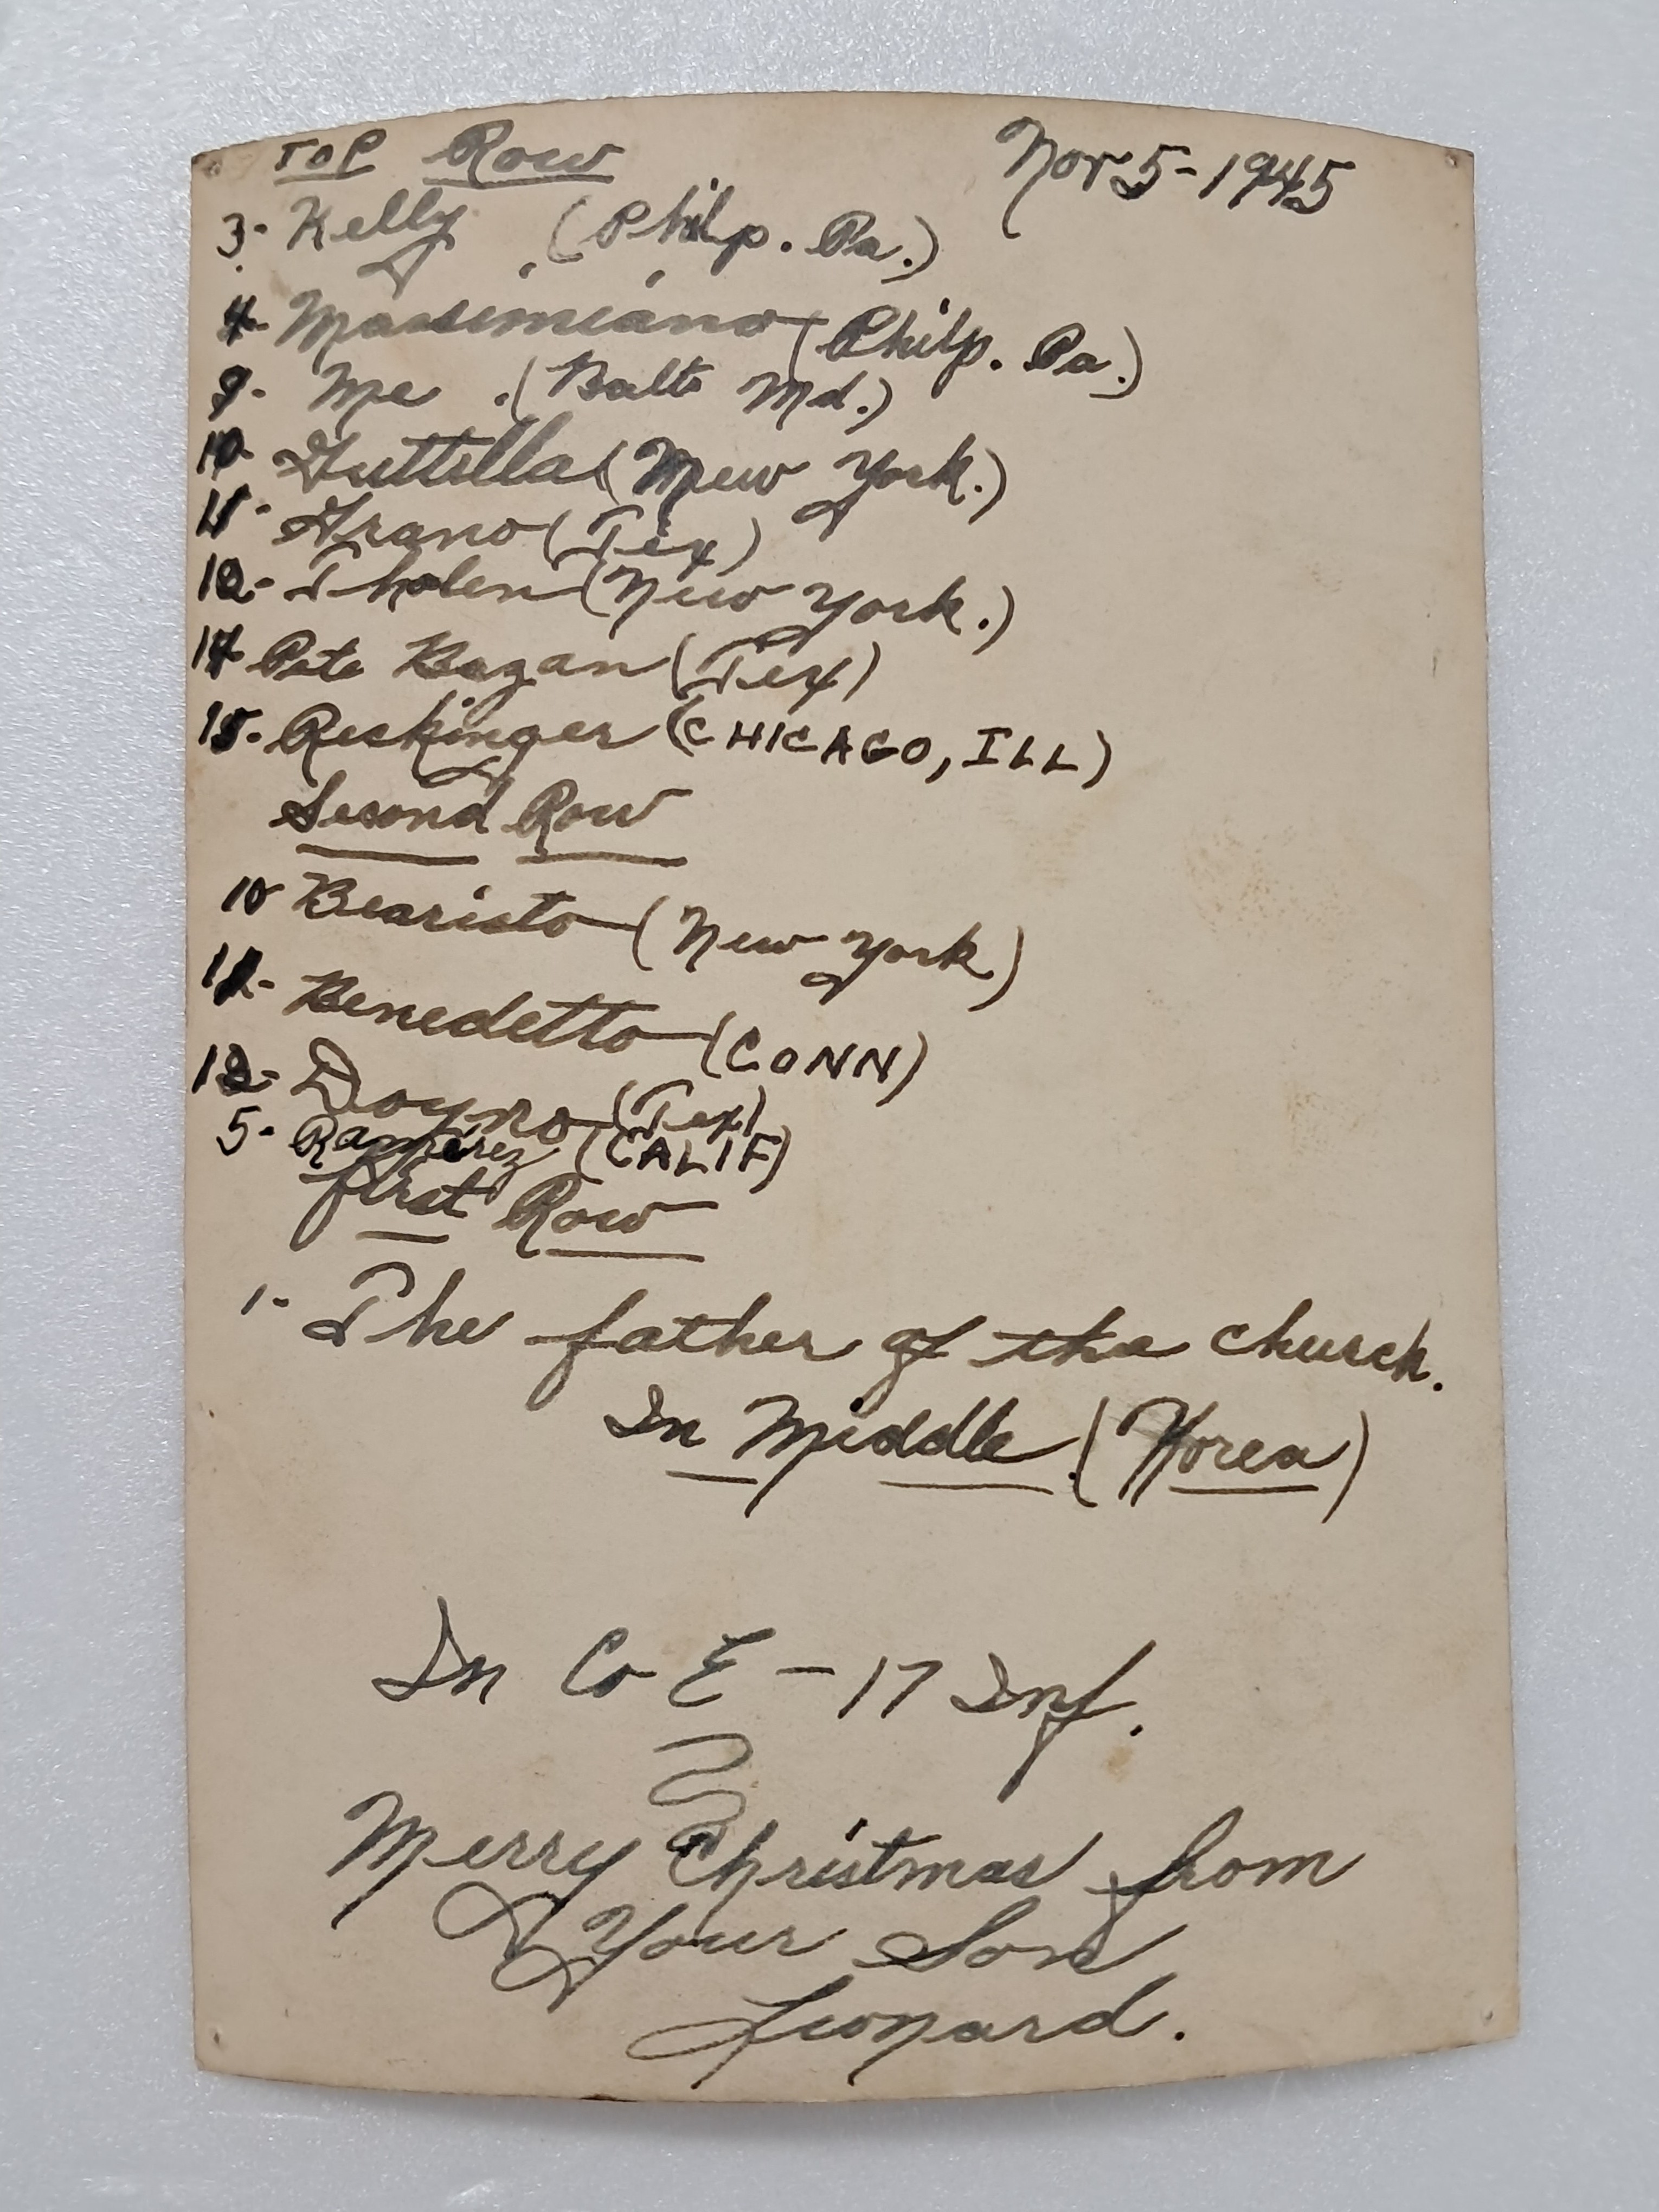 TOP Row
Nov 5-1945
3- Kelly (Philp. Pa.)
4- Massimiano (Philp. Pa.)
9- Me. (Balto Md.)
10- (New York.)
11- Grano (Tex)
12- Tholen (New York.)
14 Pete Bazan (Tex)
15- Reskinger (CHICAGO, ILL)
Second Row
10 Bearisto (New York)
11- Benedetto (CONN)
12- (Tex)
5- Ramirez (CALIF)
first Row
1- The father of the church.
In Middle. (Korea)
In Co E - 17 Inf.
Merry Christmas from
Your Son
Leonard.